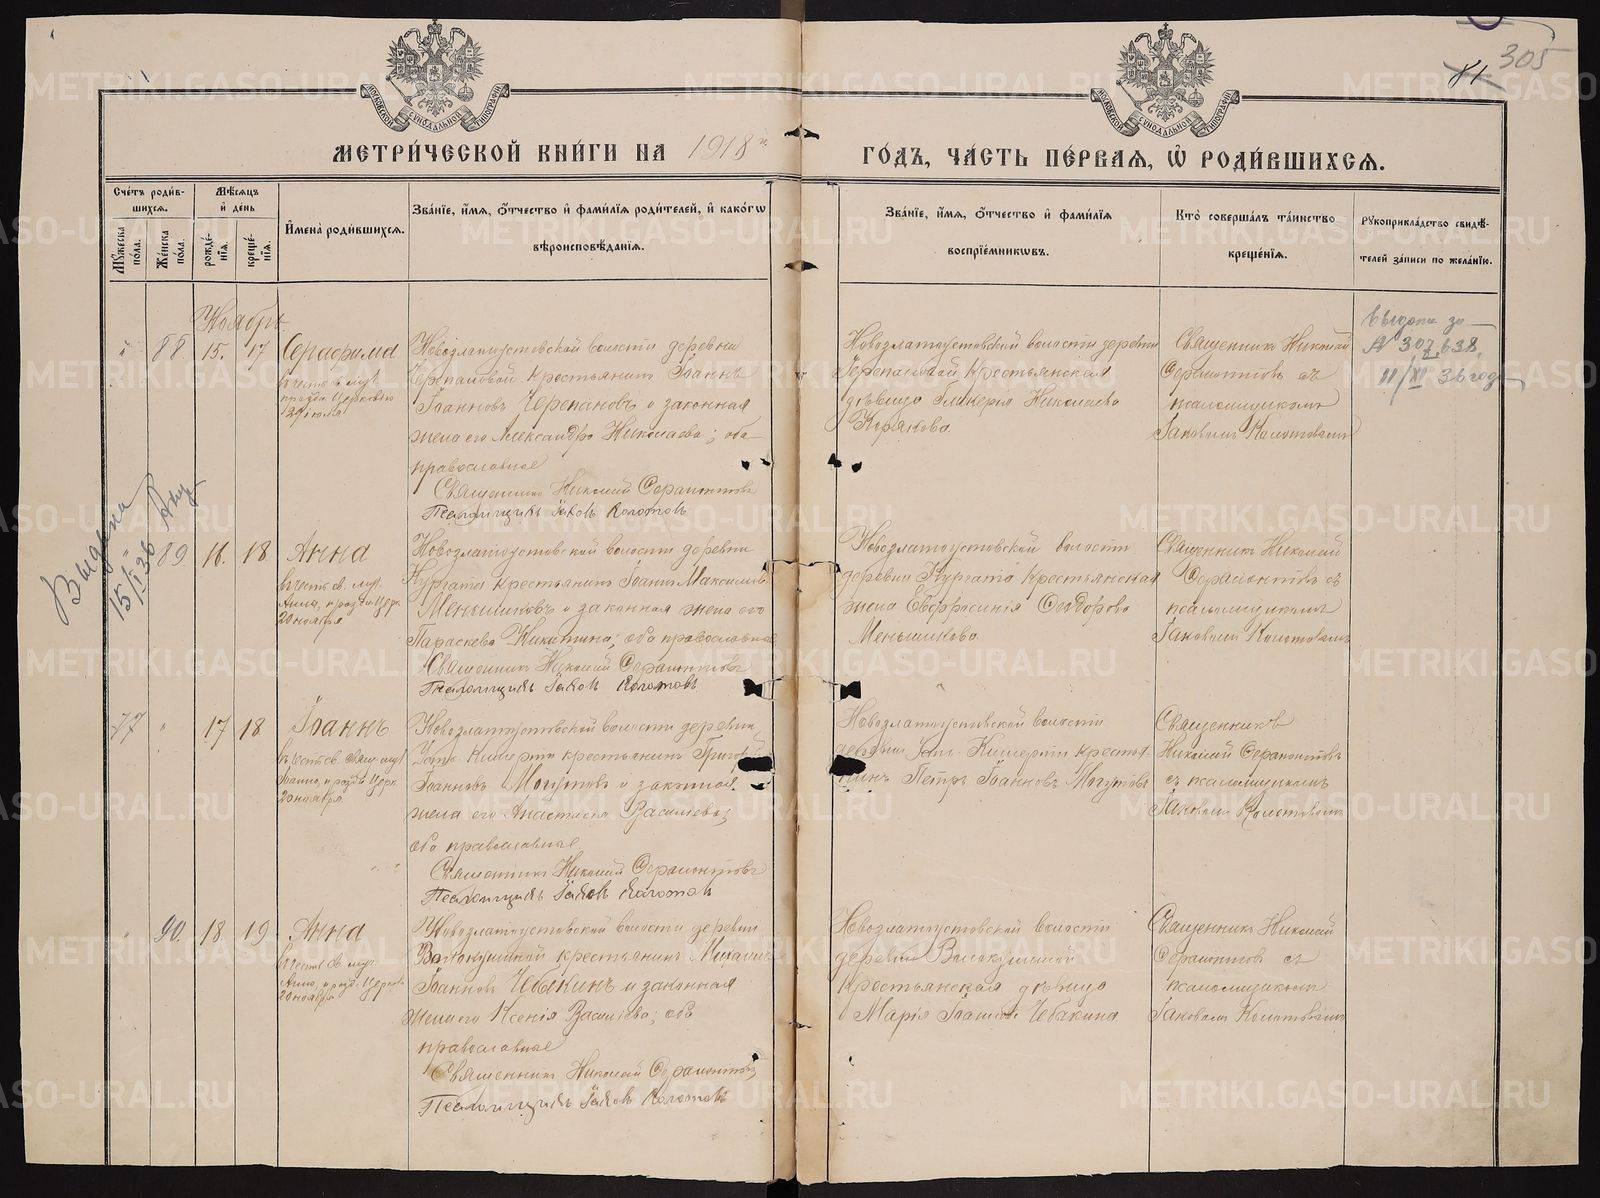 305
81
МЕТРИ́ЧЕСКОЙ КНИ́ГИ НА 1918 й.
ГО́ДЪ, ЧА́СТЬ ПЕ́РВАѦ, Ѡ҆ РОДИ́ВШИХСѦ.
Сче́тъ роди́в-
шихсѧ.
Мꙋ́жеска по́ла.
Же́нска по́ла.
Мѣ́сѧцъ
и҆ де́нь
рожде́-
нїѧ.
креще́-
нїѧ.
И҆мена̀ роди́вшихсѧ.
Зва́нїе, и҆́мѧ, ѻ҆́тчество и҆ фами́лїѧ роди́телей, и҆ како́гѡ
вѣроисповѣ́данїѧ.
Зва́нїе, и҆́мѧ, ѻ҆́тчество и҆ фами́лїѧ
воспрїе́мникѡвъ.
Кто̀ соверша́лъ та́инство
креще́нїѧ.
Рꙋкоприкла́дство свидѣ́-
телей за́писи по жела́нїю.
Ноябрь.
88 15. 17 Серафима
праздн. Церковью
Новозлатоустовской волости деревни
Черепановой крестьянинъ Іоаннъ
Іоанновъ Черепановъ и законная
жена его Александра Николаева; оба
православные
Священникъ Николай Серапіонтовъ
Псаломщикъ Іаковъ Колотовъ
Новозлатоустовской волости деревни
Черепановой крестьянская
дѣвица Гликерія Николаева
Корякова.
Священникъ Николай
Серапіонтовъ съ
псаломщикомъ
Іаковомъ Колотовымъ
Выдана за
№ 307638,
11/XI 36 года
Выдана
15/I 36
89 16. 18 Анна
въ честь св. муч.
Анны, празд. Церк.
20 ноября
Новозлатоустовской волости деревни
Кургата крестьянинъ Іоаннъ Максимовъ
Меньшиковъ и законная жена его
Параскева Никитина; оба православные
Священникъ Николай Серапіонтовъ
Псаломщикъ Іаковъ Колотовъ
Новозлатоустовской волости
деревни Кургата крестьянская
жена Евфросинія Ѳеодорова
Меньшикова
Священникъ Николай
Серапіонтовъ съ
псаломщикомъ
Іаковомъ Колотовымъ
77 " 17 18 Іоаннъ
20 ноября
Новозлатоустовской волости деревни
Усть Кишерти крестьянинъ Григорій
Іоанновъ Могутовъ и законная
жена его Анастасія Васильева;
оба православные
Священникъ Николай Серапіонтовъ
Псаломщикъ Іаковъ Колотовъ
Новозлатоустовской волости
деревни Уст. Кишерти крестья-
нинъ Петръ Іоанновъ Могутовъ
Священникъ
Николай Серапіонтовъ
съ псаломщикомъ
Іаковомъ Колотовымъ
90. 18 19 Анна
въ честь св. муч.
Анны, празд. Церковью
20 ноября
Новозлатоустовской волости деревни
крестьянинъ Михаилъ
Іоанновъ Чебакинъ и законная
жена его Ксенія Васильева; оба
православные
Священникъ Николай Серапіонтовъ
Псаломщикъ Іаковъ Колотовъ
Новозлатоустовской волости
деревни
крестьянская дѣвица
Марія Іоаннова Чебакина
Священникъ Николай
Серапіонтовъ съ
псаломщикомъ
Іаковомъ Колотовымъ
METRIKI.GASO-URAL.RU